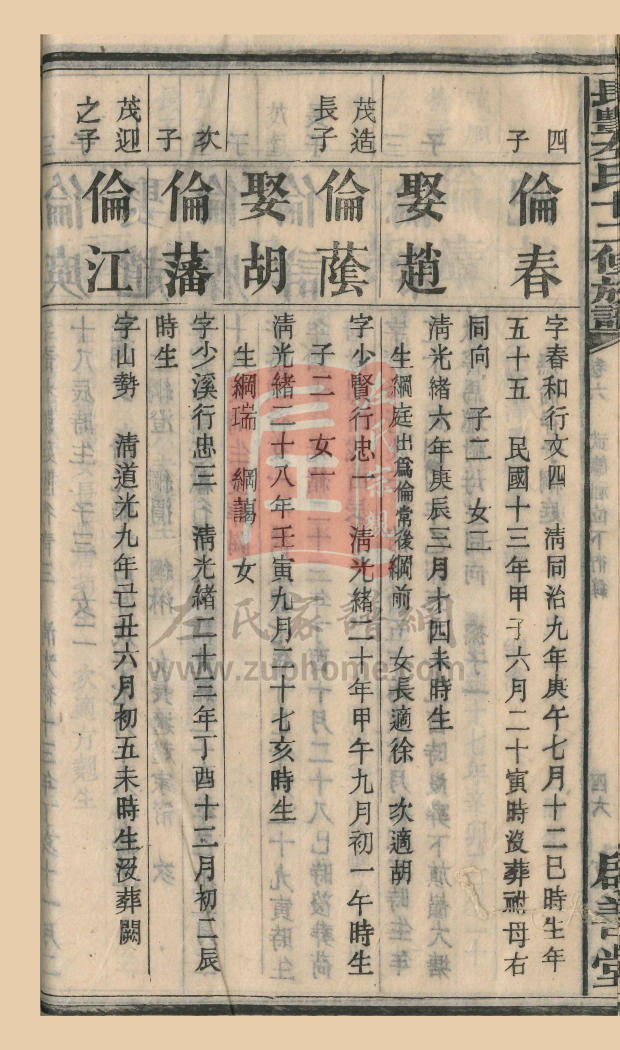 四子
倫春
字春和行文四　淸同治九年庚午七月十二巳時生年
五十五　民國十三年甲子六月二十寅時沒葬祔母右
同向　子二　女三
娶趙
淸光緒六年庚辰三月十四未時生
生綱庭出爲倫常後綱前　女長適徐　次適胡
茂造長子
倫蔭
字少賢行忠一　淸光緒二十年甲午九月初一午時生
子二　女一
娶胡
淸光緒二十八年壬寅九月二十七亥時生
生綱瑞　綱藹　女
次子
倫藩
字少溪行忠三　淸光緒二十三年丁酉十二月初二辰
時生
茂迎之子
倫江
字山勢　淸道光九年己丑六月初五未時生沒葬闕
左氏十二修族譜
卷六
四六
啟善堂
左氏家譜網
www.zuohome.com